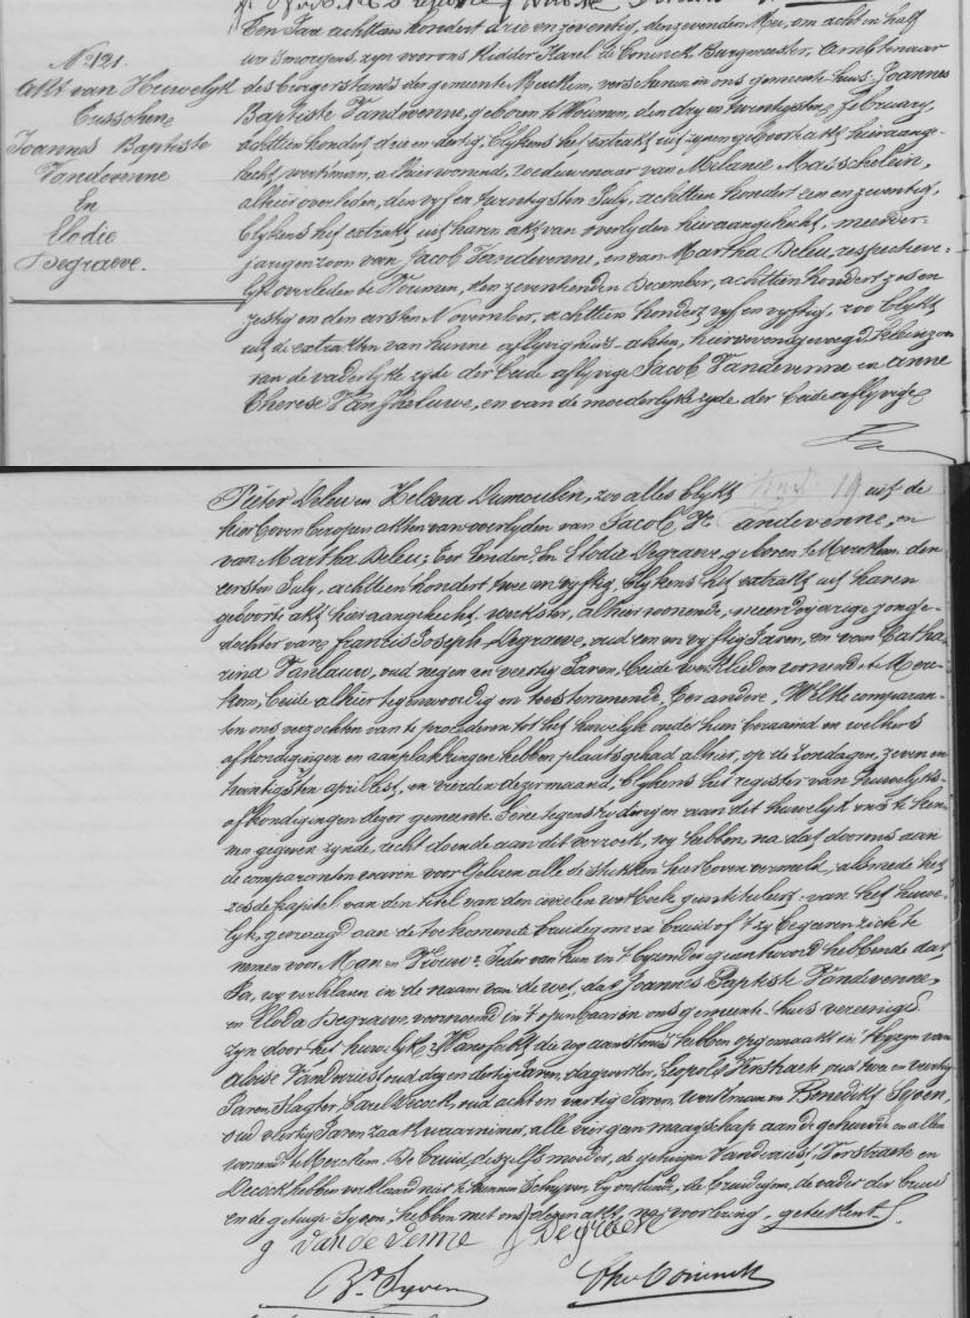 N° 121.
Akt van Huwelyk
Tusschen
Joannes Baptiste
Vandevenne
En
Elodie
Degraeve.
Een Jaar achttien hondert drie en zeventig, den zevenden Mei, om acht en half
ure s'morgens, zyn voor ons Ridder Karel de Coninck Burgemeester, Ambtenaar
des burgerstands der gemeente Merckem, verschenen in ons gemeente huis. Joannes
Baptiste Vandevenne, geboren te Woumen, den dry en twintigsten february,
achttien hondert drie en dertig, blykens het extrakt uit zynen geboorteakt hieraange-
hecht, werkman, alhier wonende, weduwenaar van Melanie Maeschelein,
alhier overleden, den vyf en twintigsten July, achttien hondert een en zeventig,
blykens het extrakt uit haren akt van overlyden hieraangehecht, meerder-
jarigen zoon van Jacob Vandevenne, en van Martha Deleu, respectieve-
lyk overleden te Woumen, den zeventienden December, achttien hondert zes en
zestig en den eersten November, achttien hondert vyf en vyftig, zoo blykt
uit de extrakten van hunne aflyvigheids-akten, hiernevensgevoegd. Kleinzoon
van de vaderlyke zyde der beide aflyvige Jacob Vandevenne en Anne
Therese Van Jheluwe, en van de moederlyke zyde der beide aflyvige
Pieter Deleu en Helena Dumoulin, zoo alles blykt 19 uit de
hierboven beroepen akten van overlyden van Jacob Vandevenne, en
van Martha Deleu; Ter Eender. En Elodie Degraeve, geboren te Merckem den
eersten July, achttien hondert twee en vyftig, blykens het extrakt uit haren
geboorte akt hieraangehecht. werkster, alhier wonende, meerderjarige jonge-
dochter van francis Joseph Degraeve, oud een en vyftig Jaren, en van Catha-
rina Vanlauw, oud negen en veertig Jaren, beide werklieden wonende te Merc-
kem, beide alhier tegenwoordig en toestemmende, Ter andere. Welke comparan-
ten ons verzochten van te procederen tot het huwelyk onder hun beraamd en welkers
afkondigingen en aanplakkingen hebben plaats gehad alhier, op de zondagen, zeven en
twintigsten april lest, en vierden dezer maand, blykens het register van huwelyks-
afkondigingen dezer gemeente. Geene tegenstrydingen aan dit huwelyk ons te ken-
nen gegeven zynde, recht doende aan dit verzoek, wy hebben, na dat door ons aan
de comparanten waren voorgelezen alle de stukken hierboven vermeld, alsmede het
zesde kapitel van den titel van den civielen wetboek geintituleerd: van het huwe-
lyk, gevraagd aan de toekomende bruidegom en bruid of 't zy begeeren zich te
nemen voor Man en Vrouw. Ieder van hun in 't byzonder geantwoord hebbende dat
Ja, wy verklaren in de naam van de wet, dat Joannes Baptiste Vandevenne,
en Elodie Degraeve, voornoemd in 't openbaar in ons gemeente-huis vereenigd
zyn door het huwelyk. Waervan akt die wy aanstonds hebben opgemaakt in 't byzyn van
Aloise Vandriest oud dry en dertig Jaren, dagwerker, Leopold Verstraete, oud twee en veertig
Jaren, Slagter, Carel Decock, oud acht en veertig Jaren, werkman en Benedikt Syoen,
oud veertig Jaren zaakwaarnemer, alle vier geen maagschap aan de gehuwde en allen
wonende te Merckem. De bruid, dezelfs moeder, de getuigen Vandriest, Verstraete en
Decock hebben verklaard niet te kunnen schryven, by onkunde, de bruidegom, de vader der bruid
en de getuige Syoen, hebben met ons dezen akt, na voorlezing, geteekent.
Van de Venne Degraeve
Bt. Syoen Chev Coninck